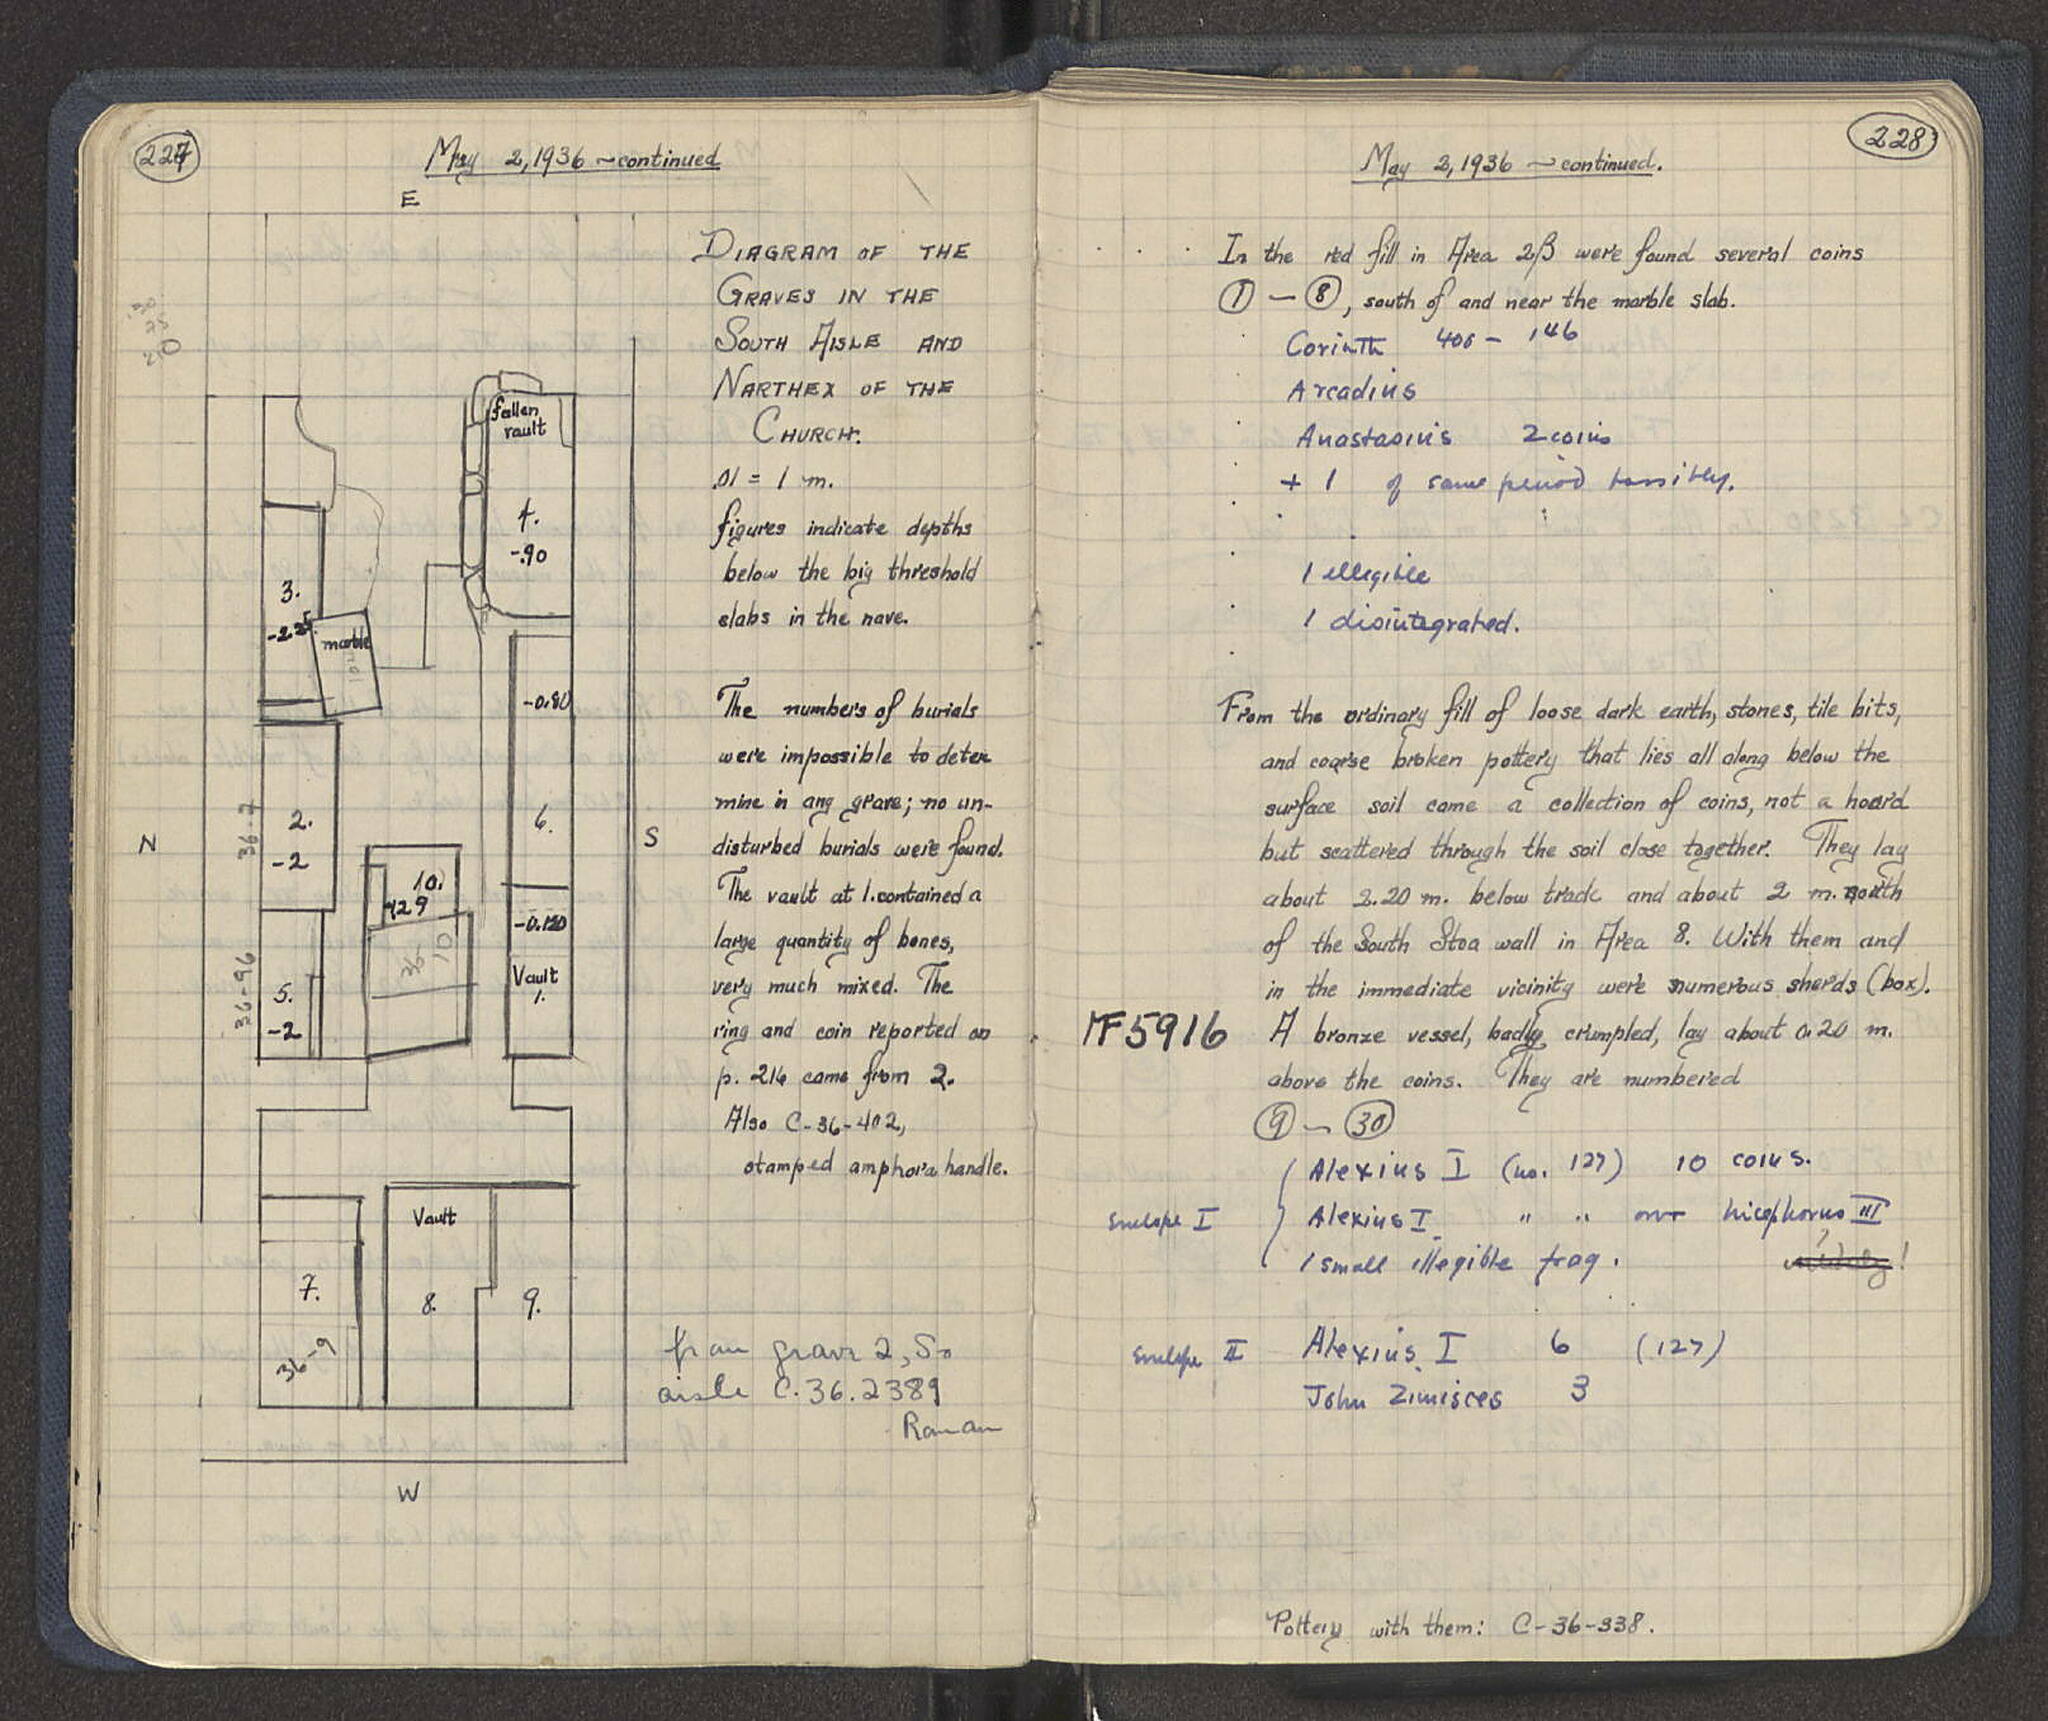 227
May 2, 1936 ~ continued
E
DIAGRAM OF THE
GRAVES IN THE
SOUTH AISLE AND
NARTHEX OF THE
CHURCH.
.01 = 1 m.
figures indicate depths
below the big threshold
slabs in the nave.
The numbers of burials
were impossible to deter
mine in any grave; no un-
disturbed burials were found.
The vault at 1. contained a
large quantity of bones,
very much mixed. The
ring and coin reported on
p. 216 came from 2.
Also C-36-402,
stamped amphora handle.
from grave 2, So
aisle C.36.2389
Roman
fallen
vault
4.
-.90
3.
-2.25
marble
-0.80
2.
-2
36-7
N
6.
S
10.
36-
10
5.
-2
36-96
Vault
1.
Vault
7.
36-9
8.
9.
W
228
May 2, 1936 ~ continued.
In the red fill in Area 2β were found several coins
① – ⑧, south of and near the marble slab.
Corinth 400 – 146
Arcadius
Anastasius 2 coins
+ 1 of same period possibly.
1 illegible
1 disintegrated.
From the ordinary fill of loose dark earth, stones, tile bits,
and coarse broken pottery that lies all along below the
surface soil came a collection of coins, not a hoard
but scattered through the soil close together. They lay
about 2.20 m. below track and about 2 m.
of the South Stoa wall in Area 8. With them and
in the immediate vicinity were numerous sherds (box).
MF5916 A bronze vessel, badly crumpled, lay about 0.20 m.
above the coins. They are numbered
⑨ – ㉚
Alexius I (no. 127) 10 coins.
Envelope I Alexius I " " over Nicephorus III
1 small illegible frag.
Envelope II Alexius I 6 (127)
John Zimisces 3
Pottery with them: C-36-338.